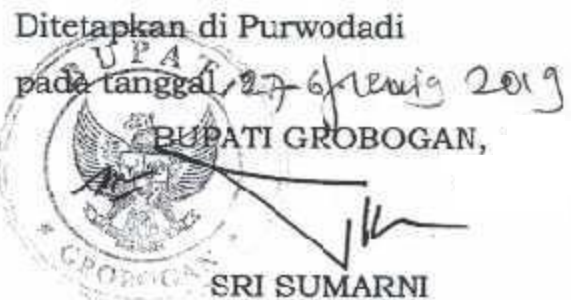 Ditetapkan di Purwodadi
pada tanggal, 27 2019
BUPATI GROBOGAN,
BUPATI
GROBOGAN
SRI SUMARNI